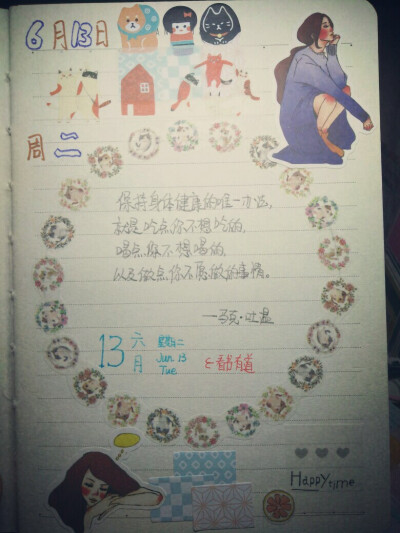 6月13日
周二
保持身体健康的唯一办法,
就是吃点你不想吃的,
喝点你不想喝的,
以及做点你不愿做的事情。
—马克·吐温
13 六月
星期二
Jun 13
Tue
Happy time